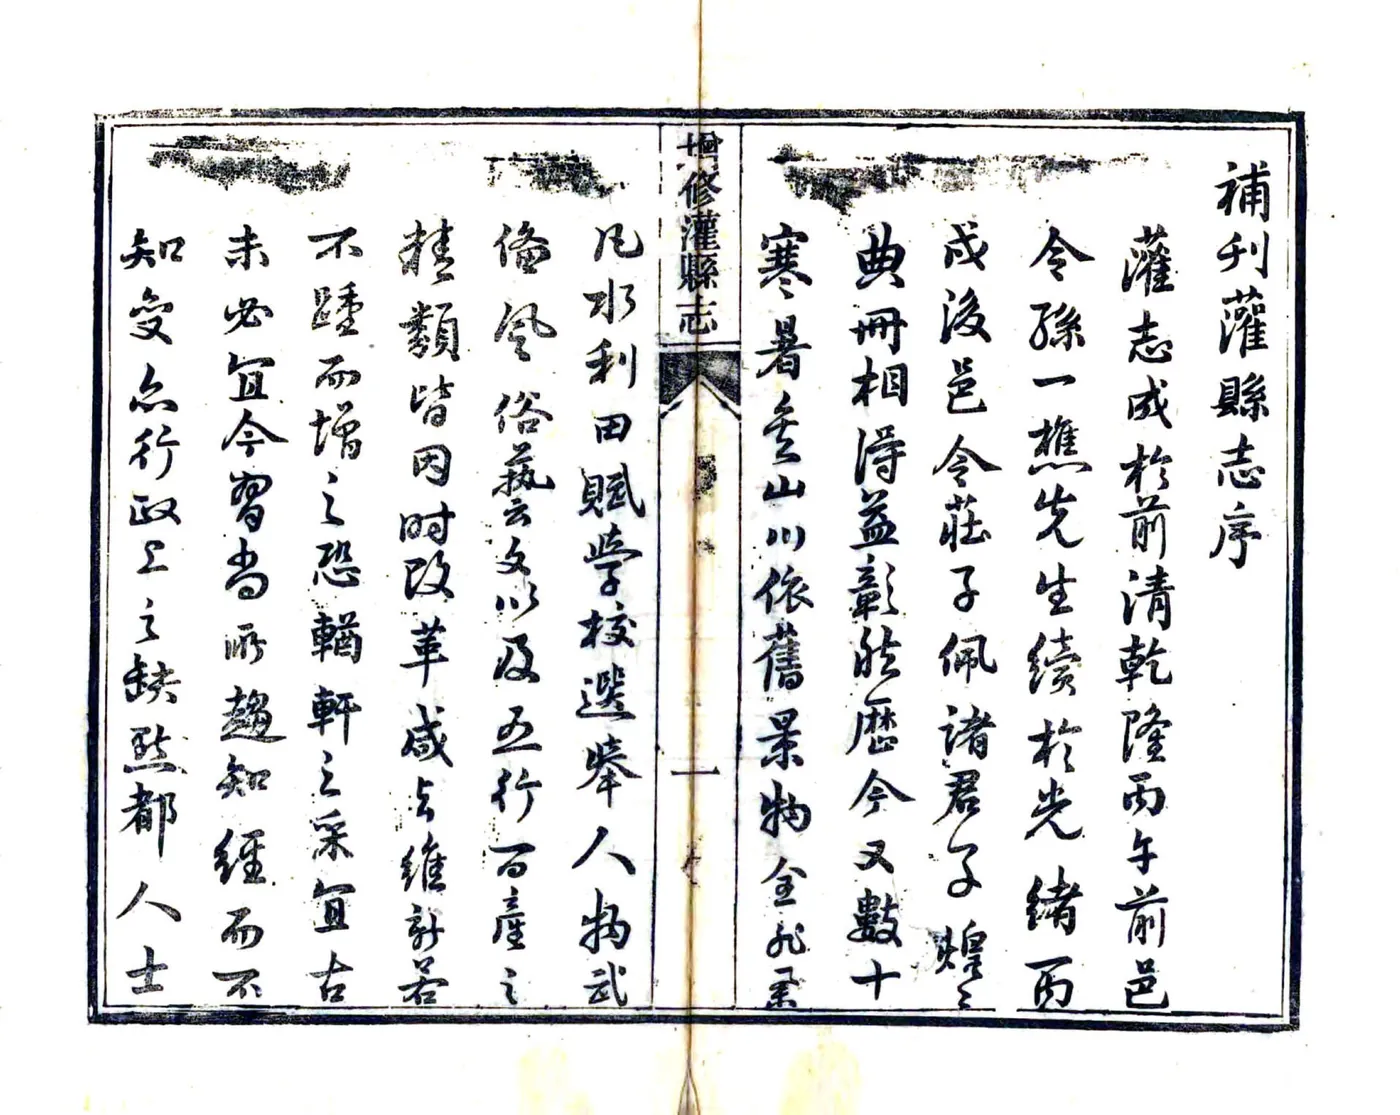 補刊灌縣志序
灌志成於前清乾隆丙午前邑
令孫一樵先生續於光緒丙
戌後邑令莊子佩諸君子煌々
典冊相得益彰然歷今又數十
寒暑矣山川依舊景物全非舉
增修灌縣志
一
凡水利田賦學校選舉人物武
俻風俗藝文以及五行百產之
種類皆因時改革咸與維新若
不踵而增之恐輶軒之采宜古
未必宜今習尚所趨知經而不
知變亦行政上之缺點都人士